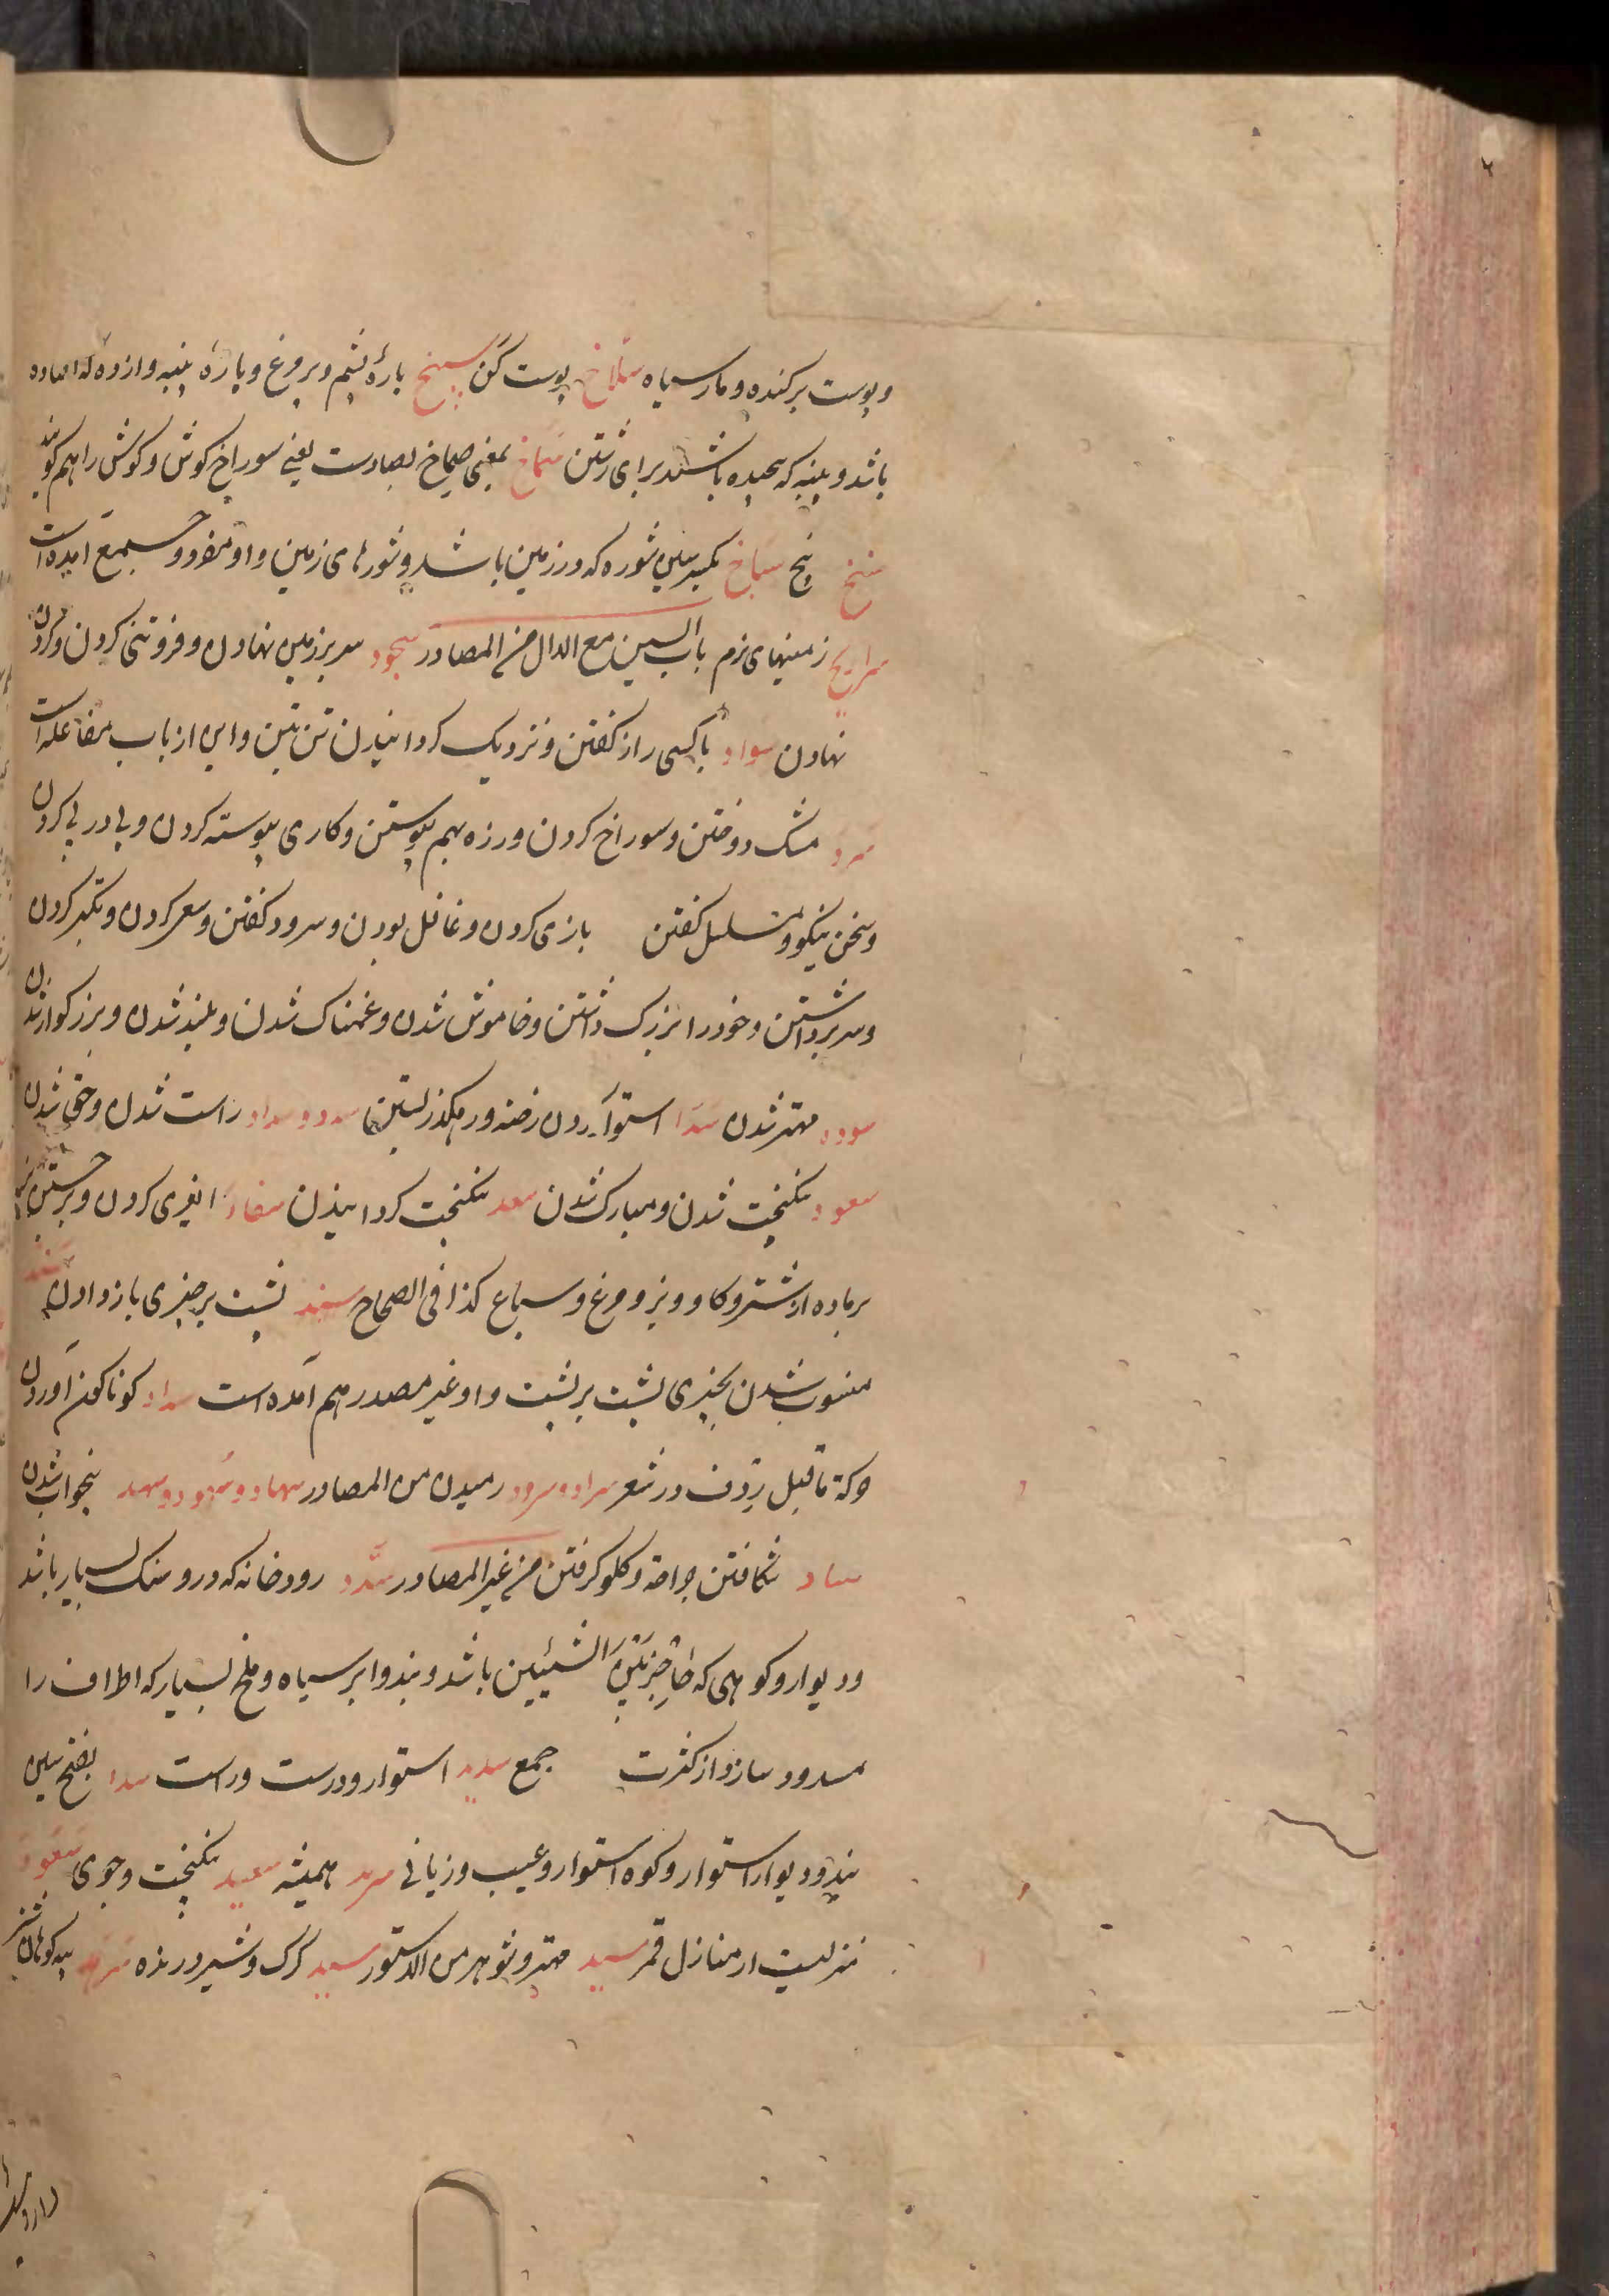 و پوست برکنده و مار سیاه سلاخ پوست کن سبیخ پارهٔ پشم و پر مرغ و پارهٔ پنبه و از وی که افتاده
باشد و پنبه که پیچیده باشند برای رشتن سماخ بمعنی صماخ بصادست یعنی سوراخ کوش و کوش را هم کویند
سنخ بیخ سباخ بکسر سین شوره که در زمین باشد و شورهای زمین و او مفرد و جمع آمده است
زمینهای نرم باب السین مع الدال من المصادر سجود سر بر زمین نهادن و فروتنی کردن و کردن
نهادن سواد با کسی راز کفتن و نزدیک کردانیدن تن بتن و این از باب مفاعله است
سرد مشک دوختن و سوراخ کردن و زره بهم پیوستن و کاری پیوسته کردن و پی در پی کردن
و سخن نیکو و مسلسل کفتن بازی کردن و غافل بودن و سرود کفتن و سعی کردن و تکبر کردن
و سر برداشتن و خود را بزرک داشتن و خاموش شدن و غمناک شدن و بلند شدن و بزرکوار شدن
مهتر شدن سد استوار کردن رخنه و رهکذر بستن سدد و سداد راست شدن و حق شدن
سعود نیکبخت شدن و مبارک شدن سعد نیکبخت کردانیدن سفاد کردن و برجستن نر
بر ماده از شتر و کاو و بز و مرغ و سباع کذا فی الصحاح سند پشت بر چیزی باز دادن
منسوب شدن بچیزی پشت بر پشت و او غیر مصدر هم آمده است سناد کوناکون آوردن
حرکة ماقبل ردف در شعر رمیدن من المصادر سهاد و سهود و سهد بیخواب شدن
شکافتن جراحة و کلو کرفتن من غیر المصادر سد رودخانه که درو سنک بسیار باشد
و دیوار و کوهی که حاجز بین الشیئین باشد و بند و ابر سیاه و ملخ بسیار که اطراف را
مسدود سازد از کثرت جمع سدید استوار و درست و راست سد بفتح سین
بند و دیوار استوار و کوه استوار و عیب و زیانی سرمد همیشه سعید نیکبخت و جوی سعود
منزلیست از منازل قمر سید مهتر و شوهر من الدستور سید کرک و شیر درنده سرهد پیه کوهان شتر